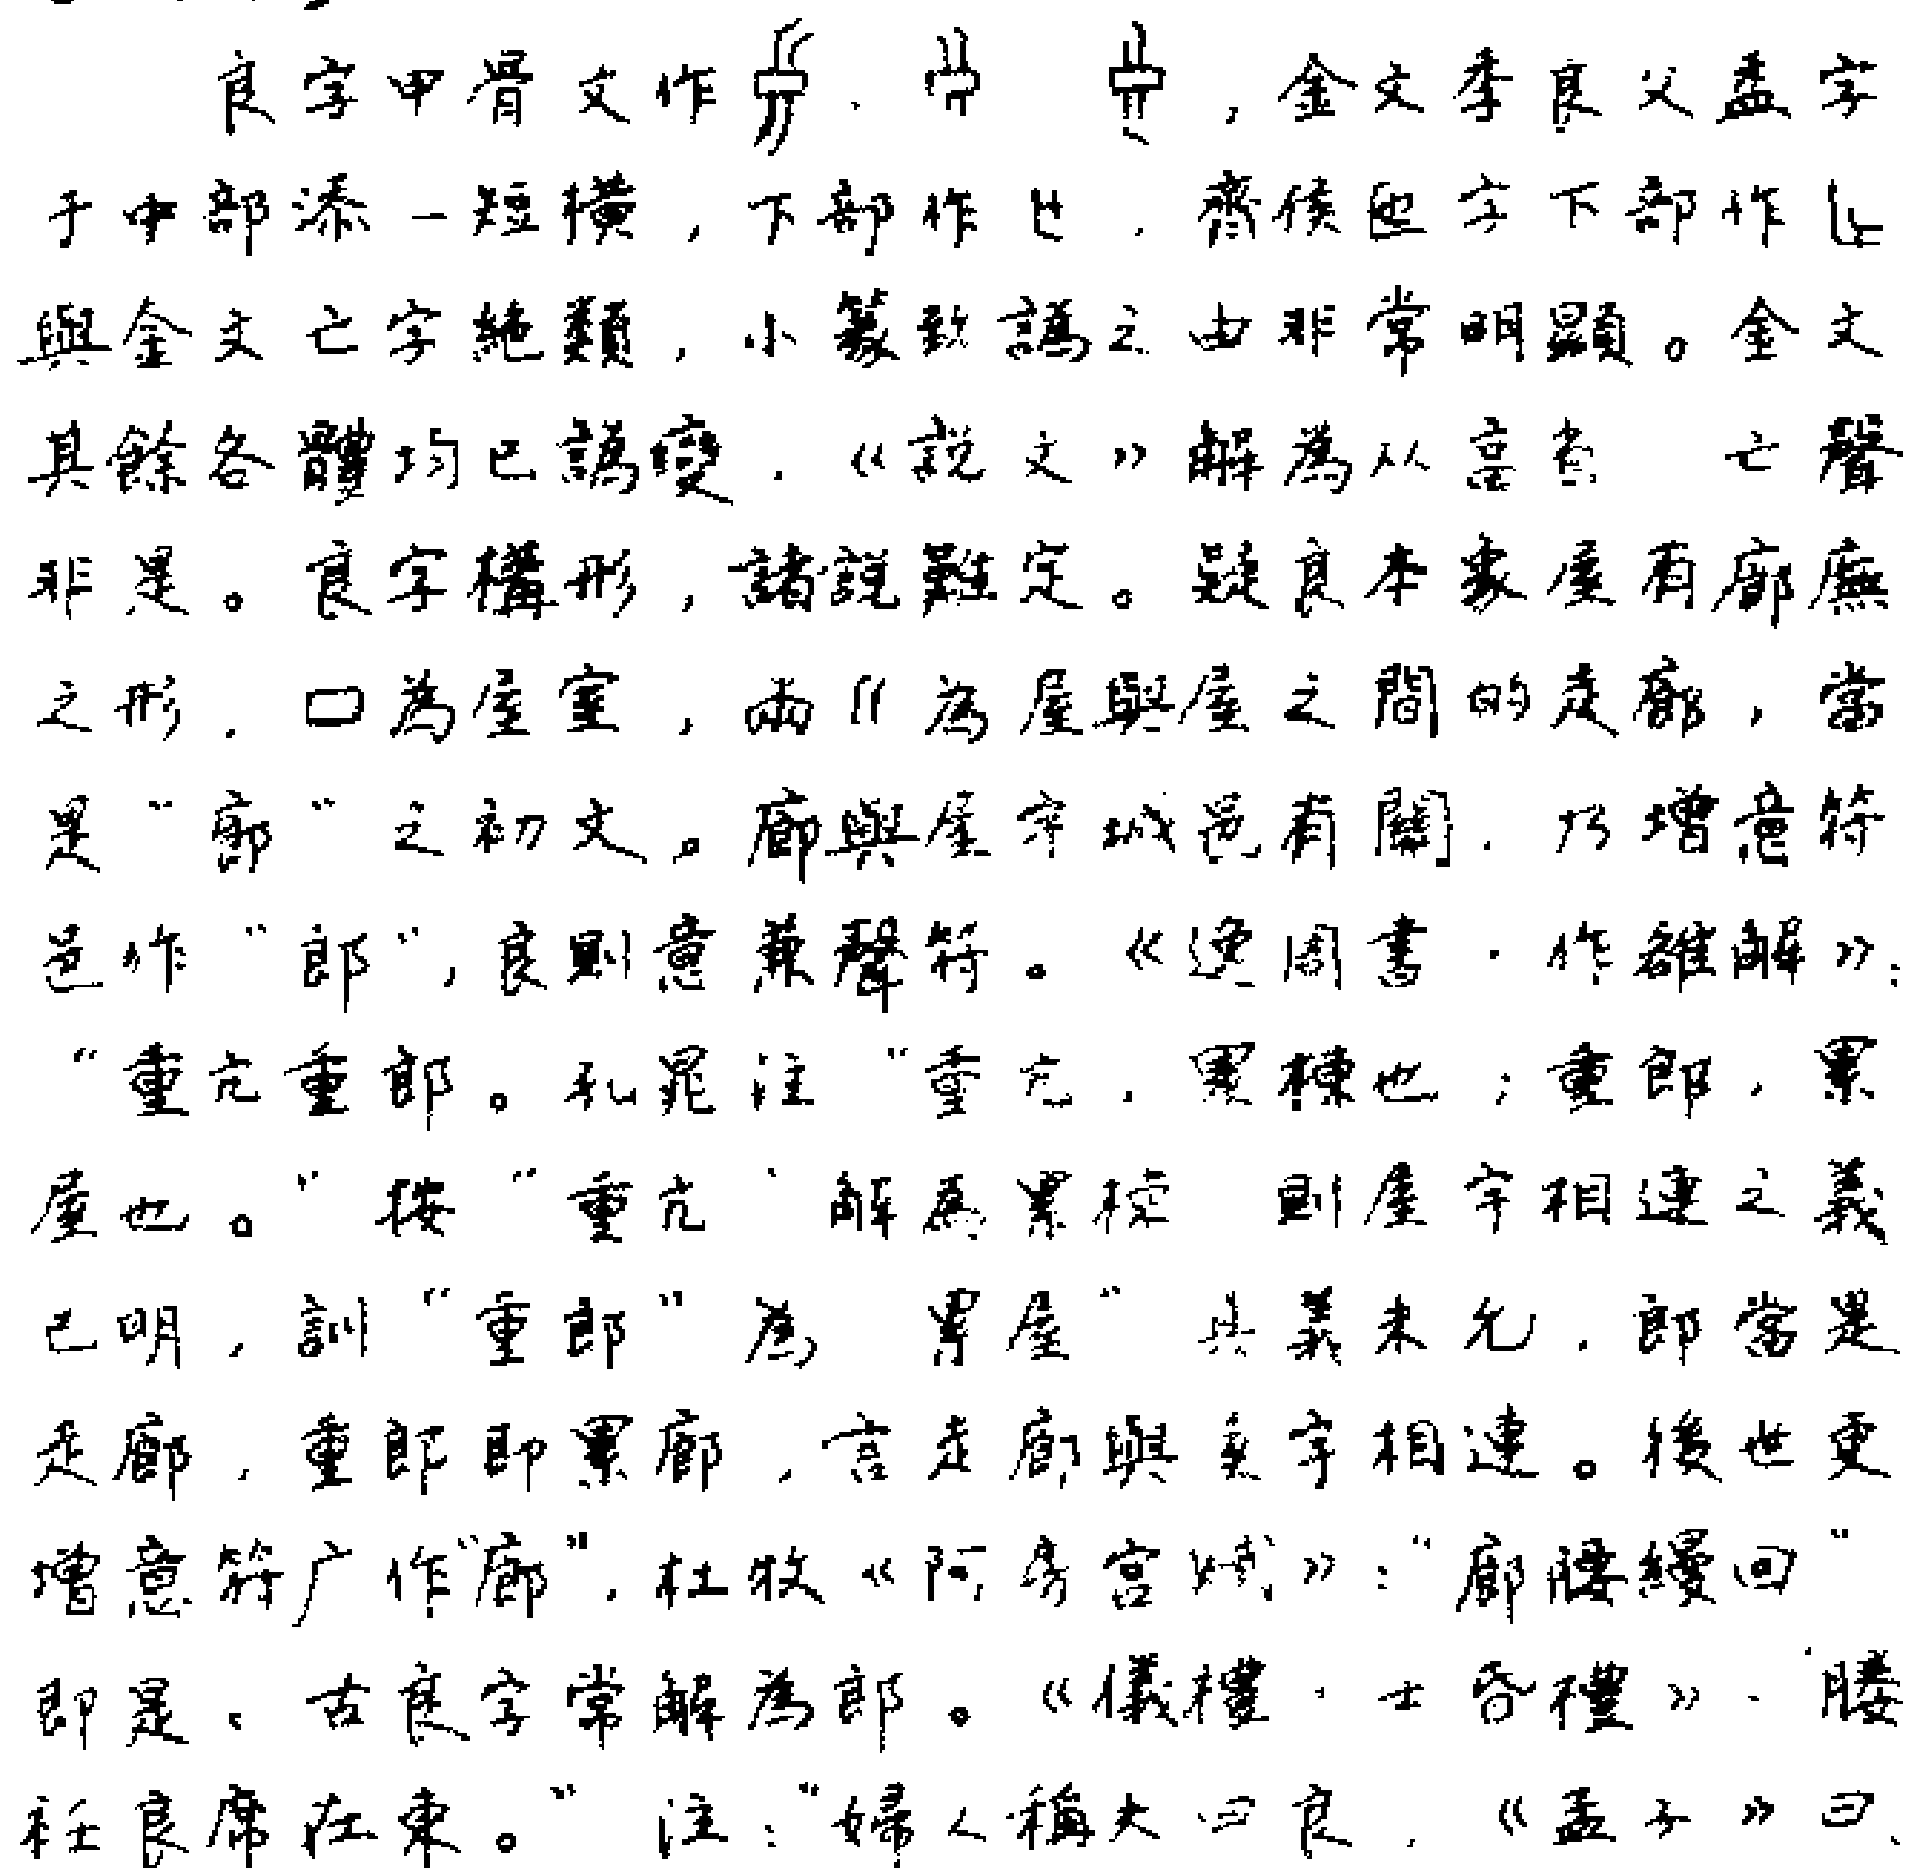 良字甲骨文作、，金文季良父盂字
于中部添一短橫，下部作，齊侯匜字下部作
與金文亡字絕類，小篆致譌之由非常明顯。金文
其餘各體均已譌變．《説文》解為从畗省 亡聲
非是。良字構形，諸說難定。疑良本象屋有廊廡
之形．口為屋室，兩〃為屋與屋之間的走廊，當
是“廊”之初文。廊與屋宇城邑有關．乃增意符
邑作“郎”，良則意兼聲符。《逸周書·作雒解》：
“重亢重郎。孔晁注“重亢．累棟也；重郎．累
屋也。”按“重亢‘解為累棟 則屋宇相連之義
已明，訓“重郎”為 累屋”其義未允．郎當是
走廊．重郎即累廊，言走廊與室宇相連。後世更
增意符广作“廊”．杜牧《阿房宮賦》：“廊腰縵回”
即是。古良字常解為郎。《儀禮·士昏禮》．‘媵
衽良席在東。”注：“婦人稱夫曰良．《孟子》曰、